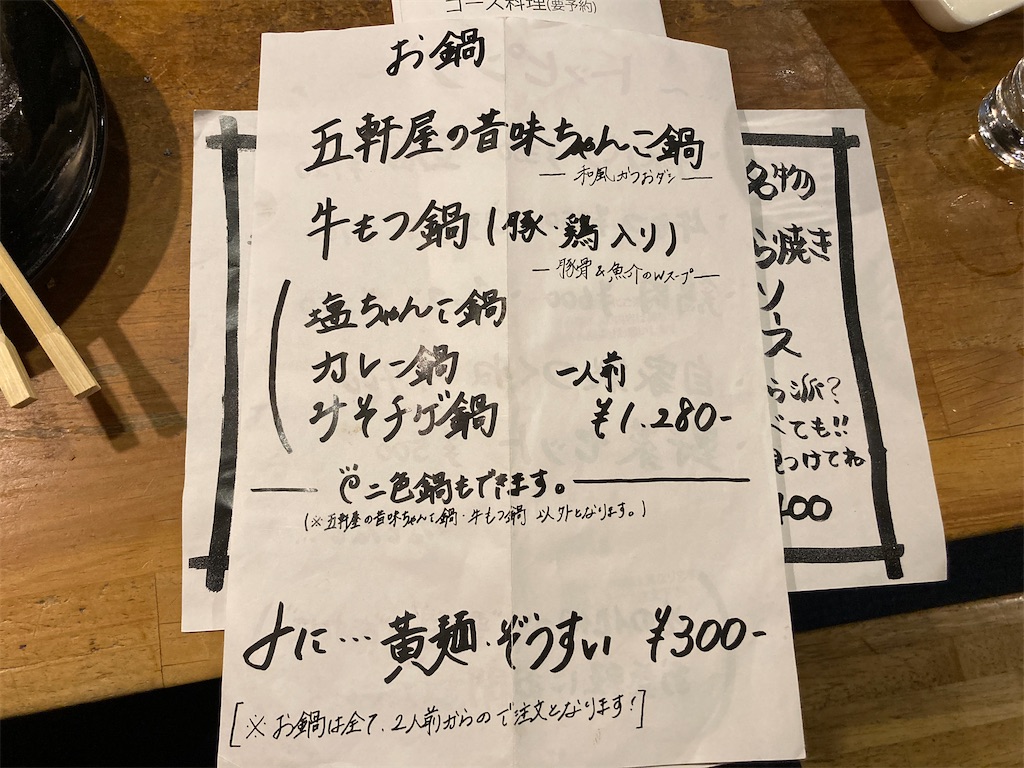 コース料理(要予約)
お鍋
五軒屋の昔味ちゃんこ鍋
― 和風かつおダシ ―
牛もつ鍋(豚・鶏入り)
― 豚骨&魚介のWスープ ―
塩ちゃんこ鍋
カレー鍋
みそチゲ鍋
一人前
¥1.280-
二色鍋もできます。
(※五軒屋の昔味ちゃんこ鍋・牛もつ鍋 以外となります。)
〆に… 黄麺・ぞうすい ¥300-
[※お鍋は全て、2人前からのご注文となります!]
名物
ら焼き
ソース
ら派?
べても!!
見つけてね
400